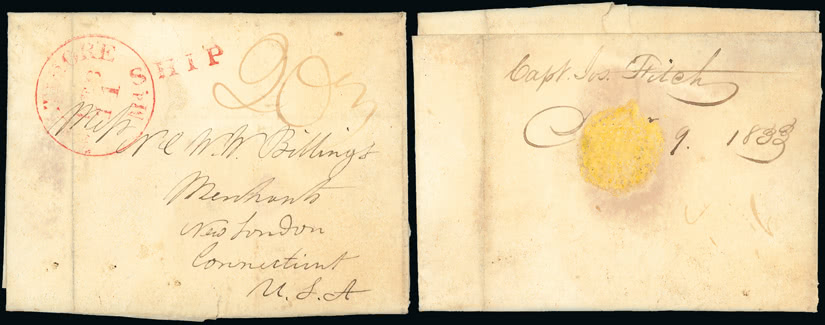 SHIP
20¾
Mess N & W. W. Billings
Merchants
New London
Connecticut
U. S. A
Capt. Jos. Fitch
9. 1833